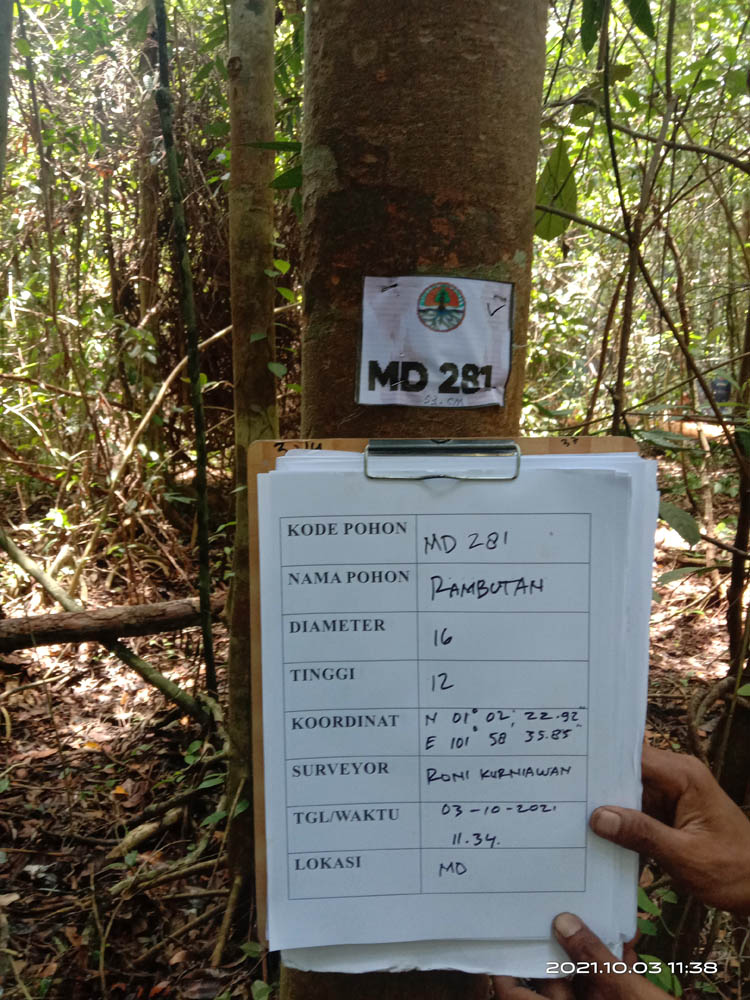 MD 281
KODE POHON MD 281
NAMA POHON RAMBUTAN
DIAMETER 16
TINGGI 12
KOORDINAT N 01° 02; 22.92"
E 101° 58 35.85"
SURVEYOR RONI KURNIAWAN
TGL/WAKTU 03-10-2021
11.34.
LOKASI MD
2021.10.03 11:38